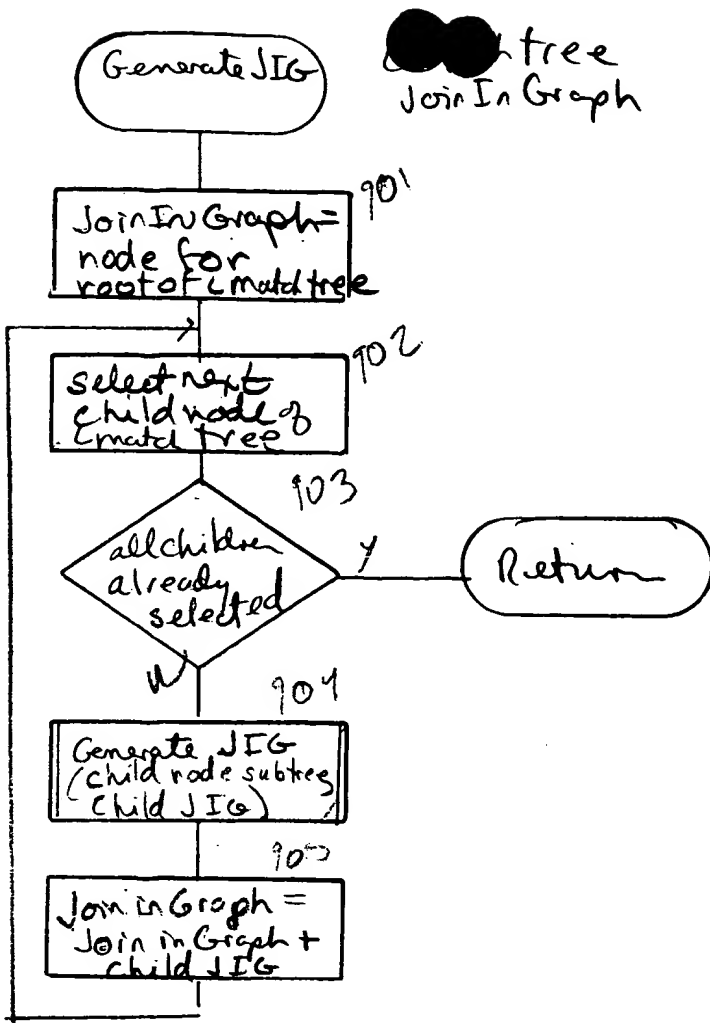 Generate JIG
tree
Join In Graph
901
Join In Graph =
node for
root of cmatch tree
902
select next
child node of
cmatch tree
903
all children
already
selected
Y
Return
N
904
Generate JIG
(child node subtree,
Child JIG)
905
Join in Graph =
Join in Graph +
child JIG